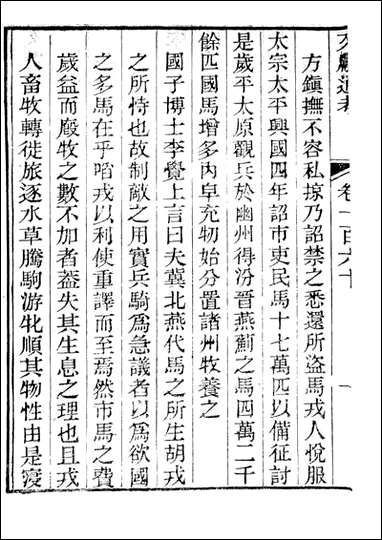 文獻通考 卷一百六十 一
方鎮撫不容私掠乃詔禁之悉還所盜馬戎人悅服
太宗太平興國四年詔市吏民馬十七萬匹以備征討
是歲平太原觀兵於幽州得汾晉燕薊之馬四萬二千
餘匹國馬增多內皁充牣始分置諸州牧養之
國子博士李覺上言曰夫冀北燕代馬之所生胡戎
之所恃也故制敵之用實兵騎爲急議者以爲欲國
之多馬在乎啗戎以利使重譯而至焉然市馬之費
歲益而廄牧之數不加者蓋失其生息之理也且戎
人畜牧轉徙旅逐水草騰駒游牝順其物性由是寖